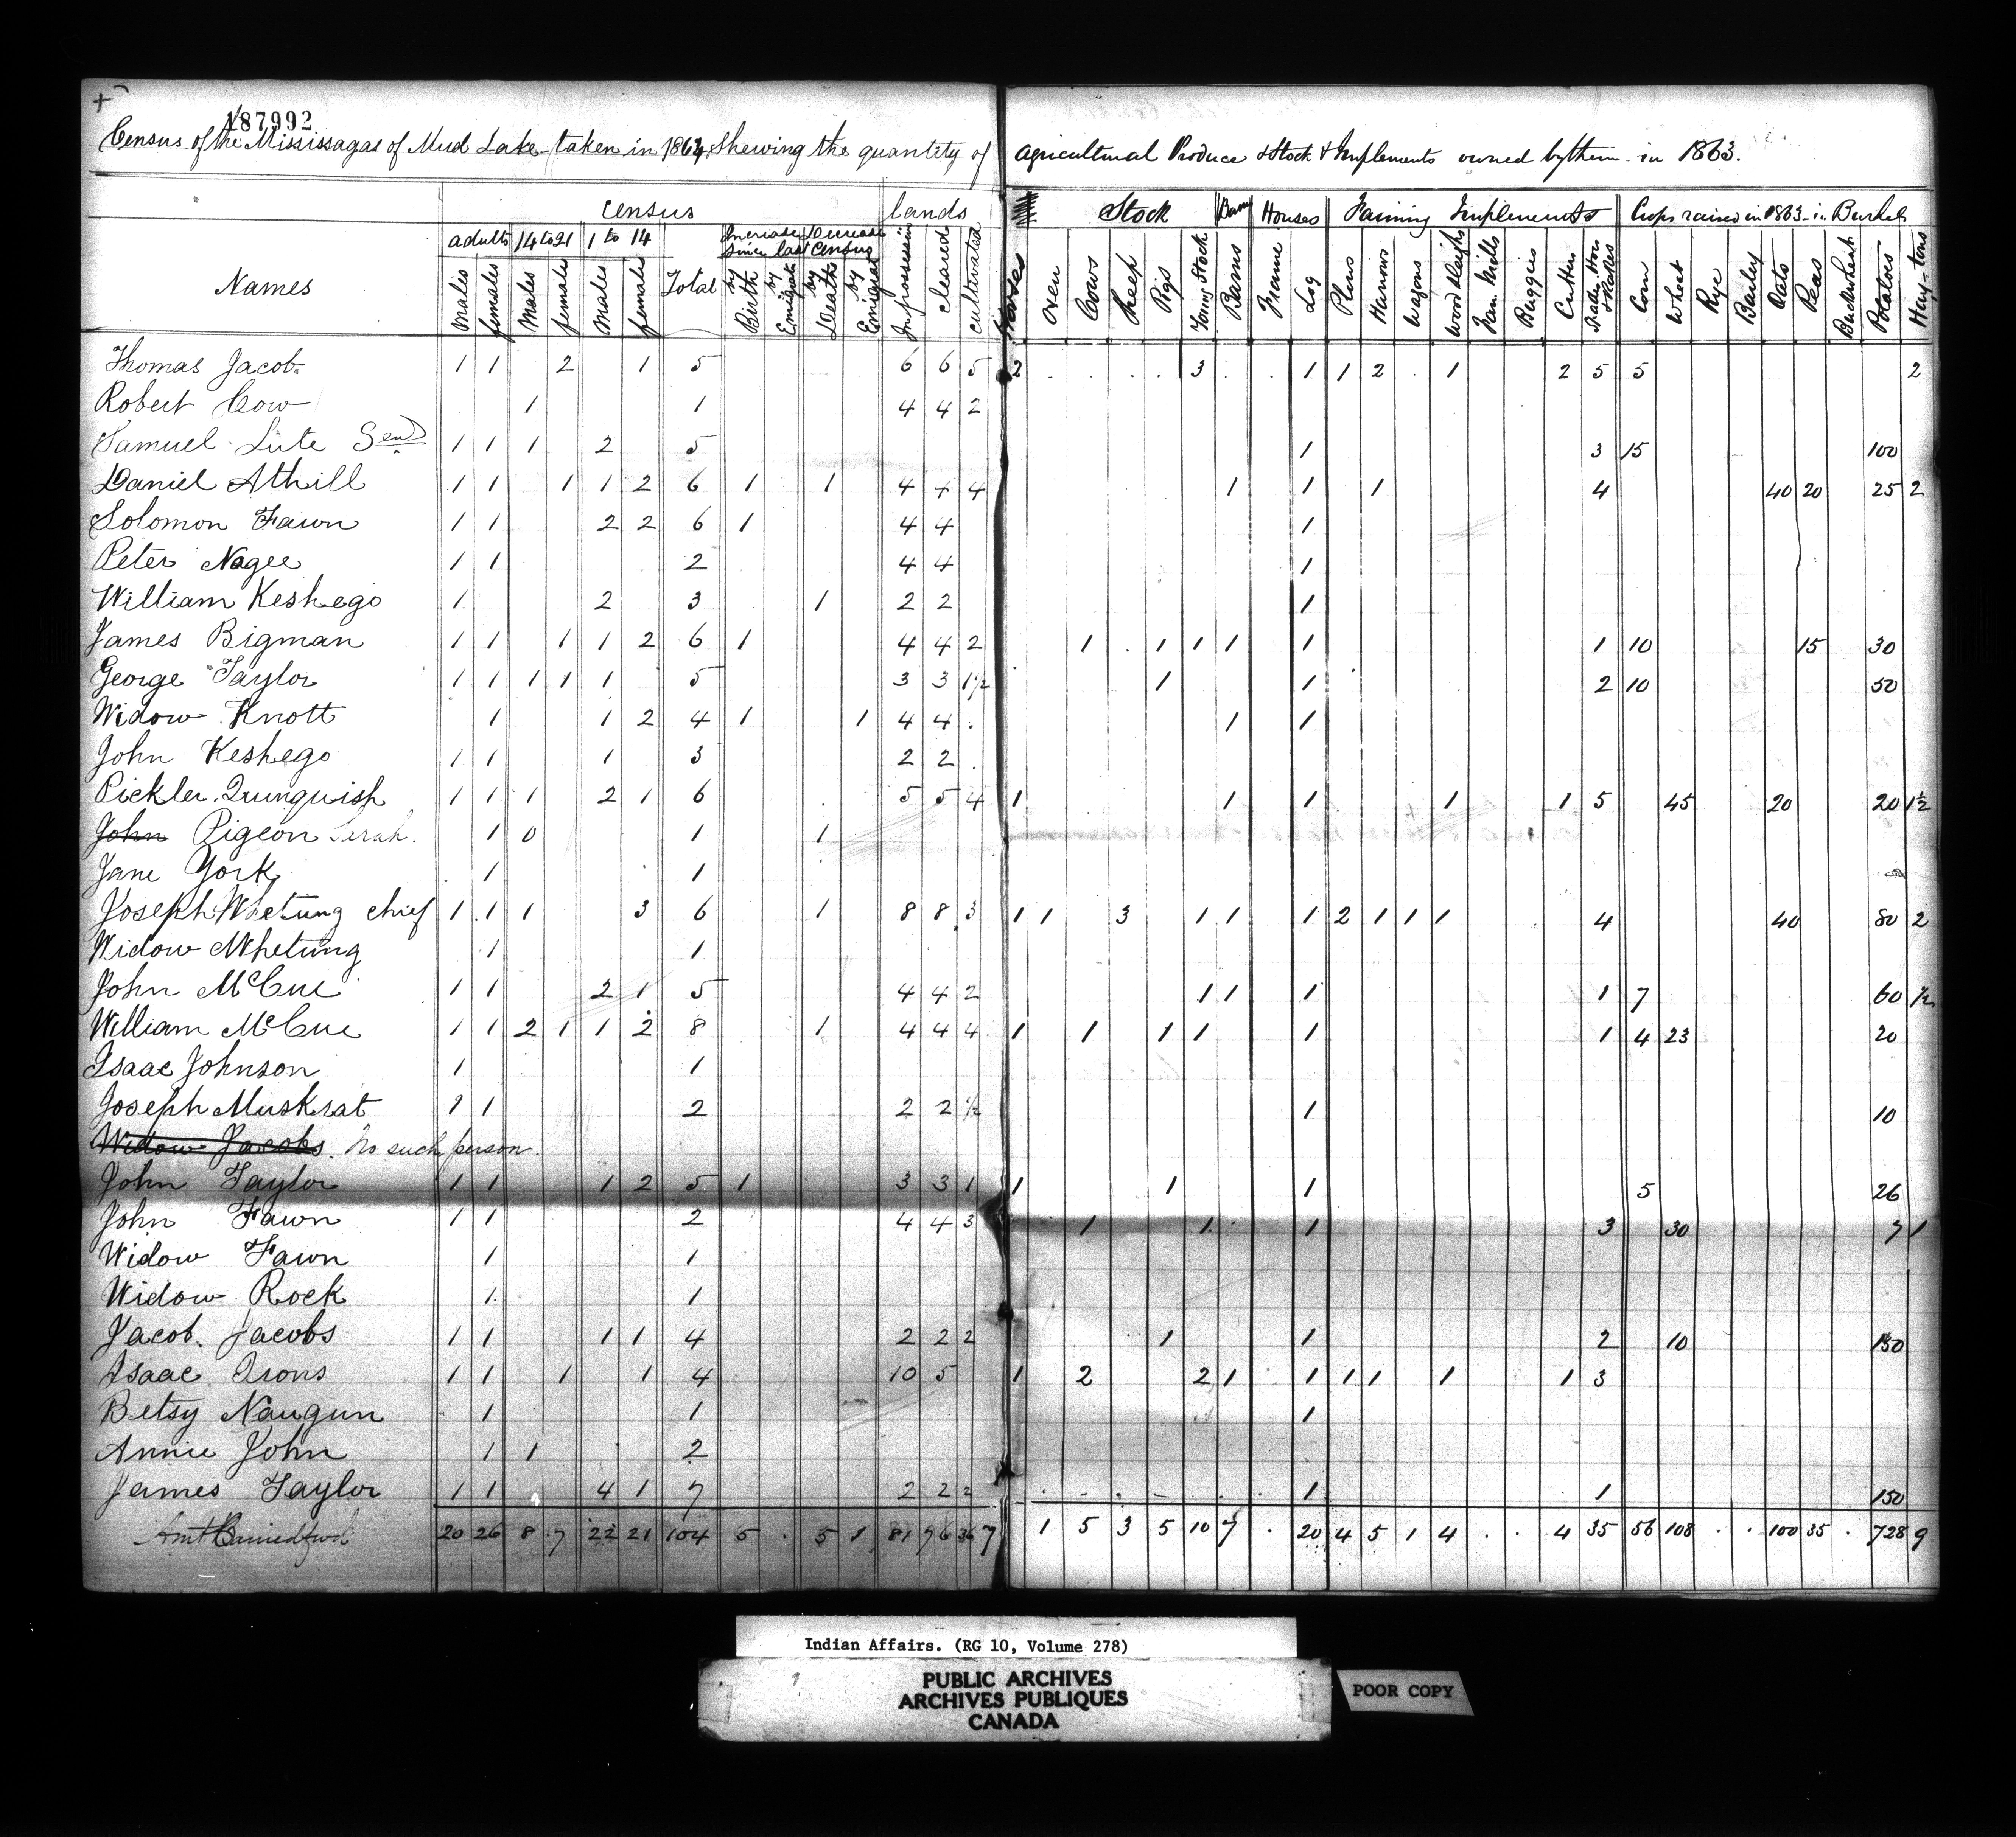 187992
Census of the Mississagas of Mud Lake taken in 1864 Shewing the quantity of agricultural Produce & Stock & Implements owned by them in 1863.
Census Lands Stock Barns Houses Farming Implements Crops raised in 1863 in Bushels
Names adults 14 to 21 1 to 14 Total Increase since last Decrease Census
Males females Males females Males females by Birth by Emigrat by Deaths by Emigrat In possession cleared cultivated Horses Oxen Cows Sheep Pigs Young Stock Barns Frame Log Plows Harrows Wagons Wood Sleighs Fan Mills Buggies Cutters Corn Wheat Rye Barley Oats Peas Buckwheat Potatoes Hay tons
Thomas Jacob 1 1 2 1 5 6 6 5 2 3 1 1 2 1 2 5 5 2
Robert Cow 1 1 4 4 2
Samuel Lute Sen 1 1 1 2 5 1 3 15 100
Daniel Athill 1 1 1 1 2 6 1 1 4 4 4 1 1 1 4 40 20 25 2
Solomon Fawn 1 1 2 2 6 1 4 4 1
Peter Nogee 1 1 2 4 4 1
William Keshego 1 2 3 1 2 2 1
James Bigman 1 1 1 1 2 6 1 4 4 2 1 1 1 1 1 1 10 15 30
George Taylor 1 1 1 1 1 5 3 3 1½ 1 1 2 10 50
Widow Knott 1 1 2 4 1 1 4 4 1 1
John Keshego 1 1 1 3 2 2
Pickler Quinquish 1 1 1 2 1 6 5 5 4 1 1 1 1 1 5 45 20 20 1½
John Pigeon 1 0 1 1
Jane York 1 1
Joseph Whetung chief 1 1 1 3 6 1 8 8 3 1 1 3 1 1 1 2 1 1 1 4 40 80 2
Widow Whetung 1 1
John McCue 1 1 2 1 5 4 4 2 1 1 1 1 7 60 ½
William McCue 1 1 2 1 1 2 8 1 4 4 4 1 1 1 1 1 1 4 23 20
Isaac Johnson 1 1
Joseph Muskrat 1 1 2 2 2 ½ 1 10
Widow Jacobs. No such person.
John Taylor 1 1 1 2 5 1 3 3 1 1 1 1 5 26
John Fawn 1 1 2 4 4 3 1 1 1 3 30 7 1
Widow Fawn 1 1
Widow Rock 1 1
Jacob Jacobs 1 1 1 1 4 2 2 2 1 1 2 10 150
Isaac Irons 1 1 1 1 4 10 5 1 2 2 1 1 1 1 1 1 3
Betsy Naugun 1 1 1
Annie John 1 1 2
James Taylor 1 1 4 1 7 2 2 2 1 1 150
Amt Carried fwd 20 26 8 7 22 21 104 5 5 1 81 76 36 7 1 5 3 5 10 7 20 4 5 1 4 4 35 56 108 100 35 728 9
Indian Affairs. (RG 10, Volume 278)
PUBLIC ARCHIVES
ARCHIVES PUBLIQUES
CANADA
POOR COPY